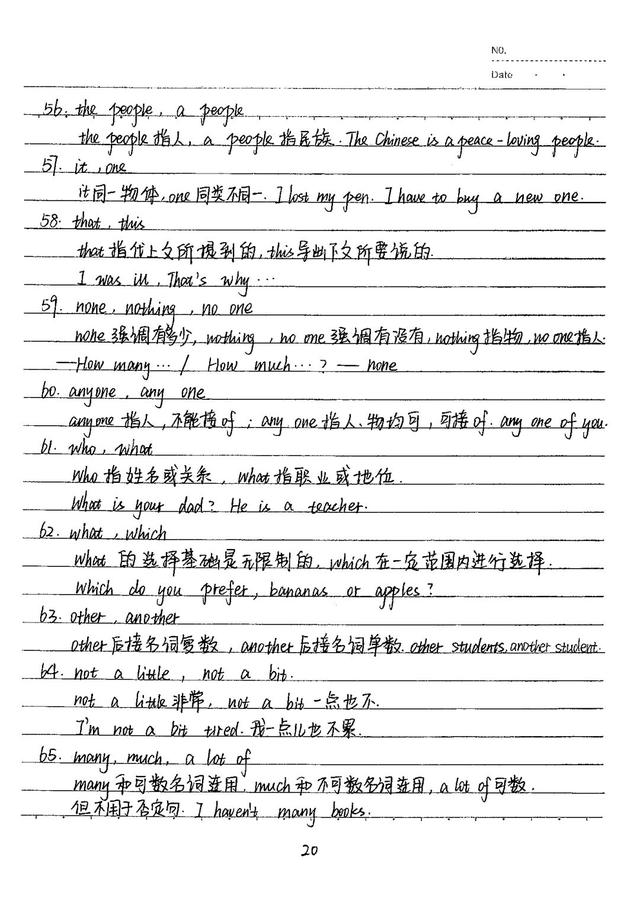 NO.
Date
56. the people, a people
the people 指人, a people 指民族. The Chinese is a peace-loving people.
57. it, one
it同一物体, one 同类不同一. I lost my pen. I have to buy a new one.
58. that, this
that 指代上文所提到的, this 导出下文所要说的.
I was ill, That's why …
59. none, nothing, no one
none 强调有多少, nothing, no one 强调有没有, nothing指物, no one指人.
—How many … / How much … ? — none
60. anyone, any one
anyone 指人, 不能接of; any one 指人、物均可, 可接of. any one of you.
61. who, what
who 指姓名或关系, what 指职业或地位.
What is your dad? He is a teacher.
62. what, which
what 的选择基础是无限制的, which 在一定范围内进行选择.
Which do you prefer, bananas or apples?
63. other, another
other后接名词复数, another后接名词单数. other students, another student.
64. not a little, not a bit.
not a little 非常, not a bit 一点也不.
I'm not a bit tired. 我一点儿也不累.
65. many, much, a lot of
many 和可数名词连用, much 和不可数名词连用, a lot of 可数.
但不用于否定句. I haven't many books.
20